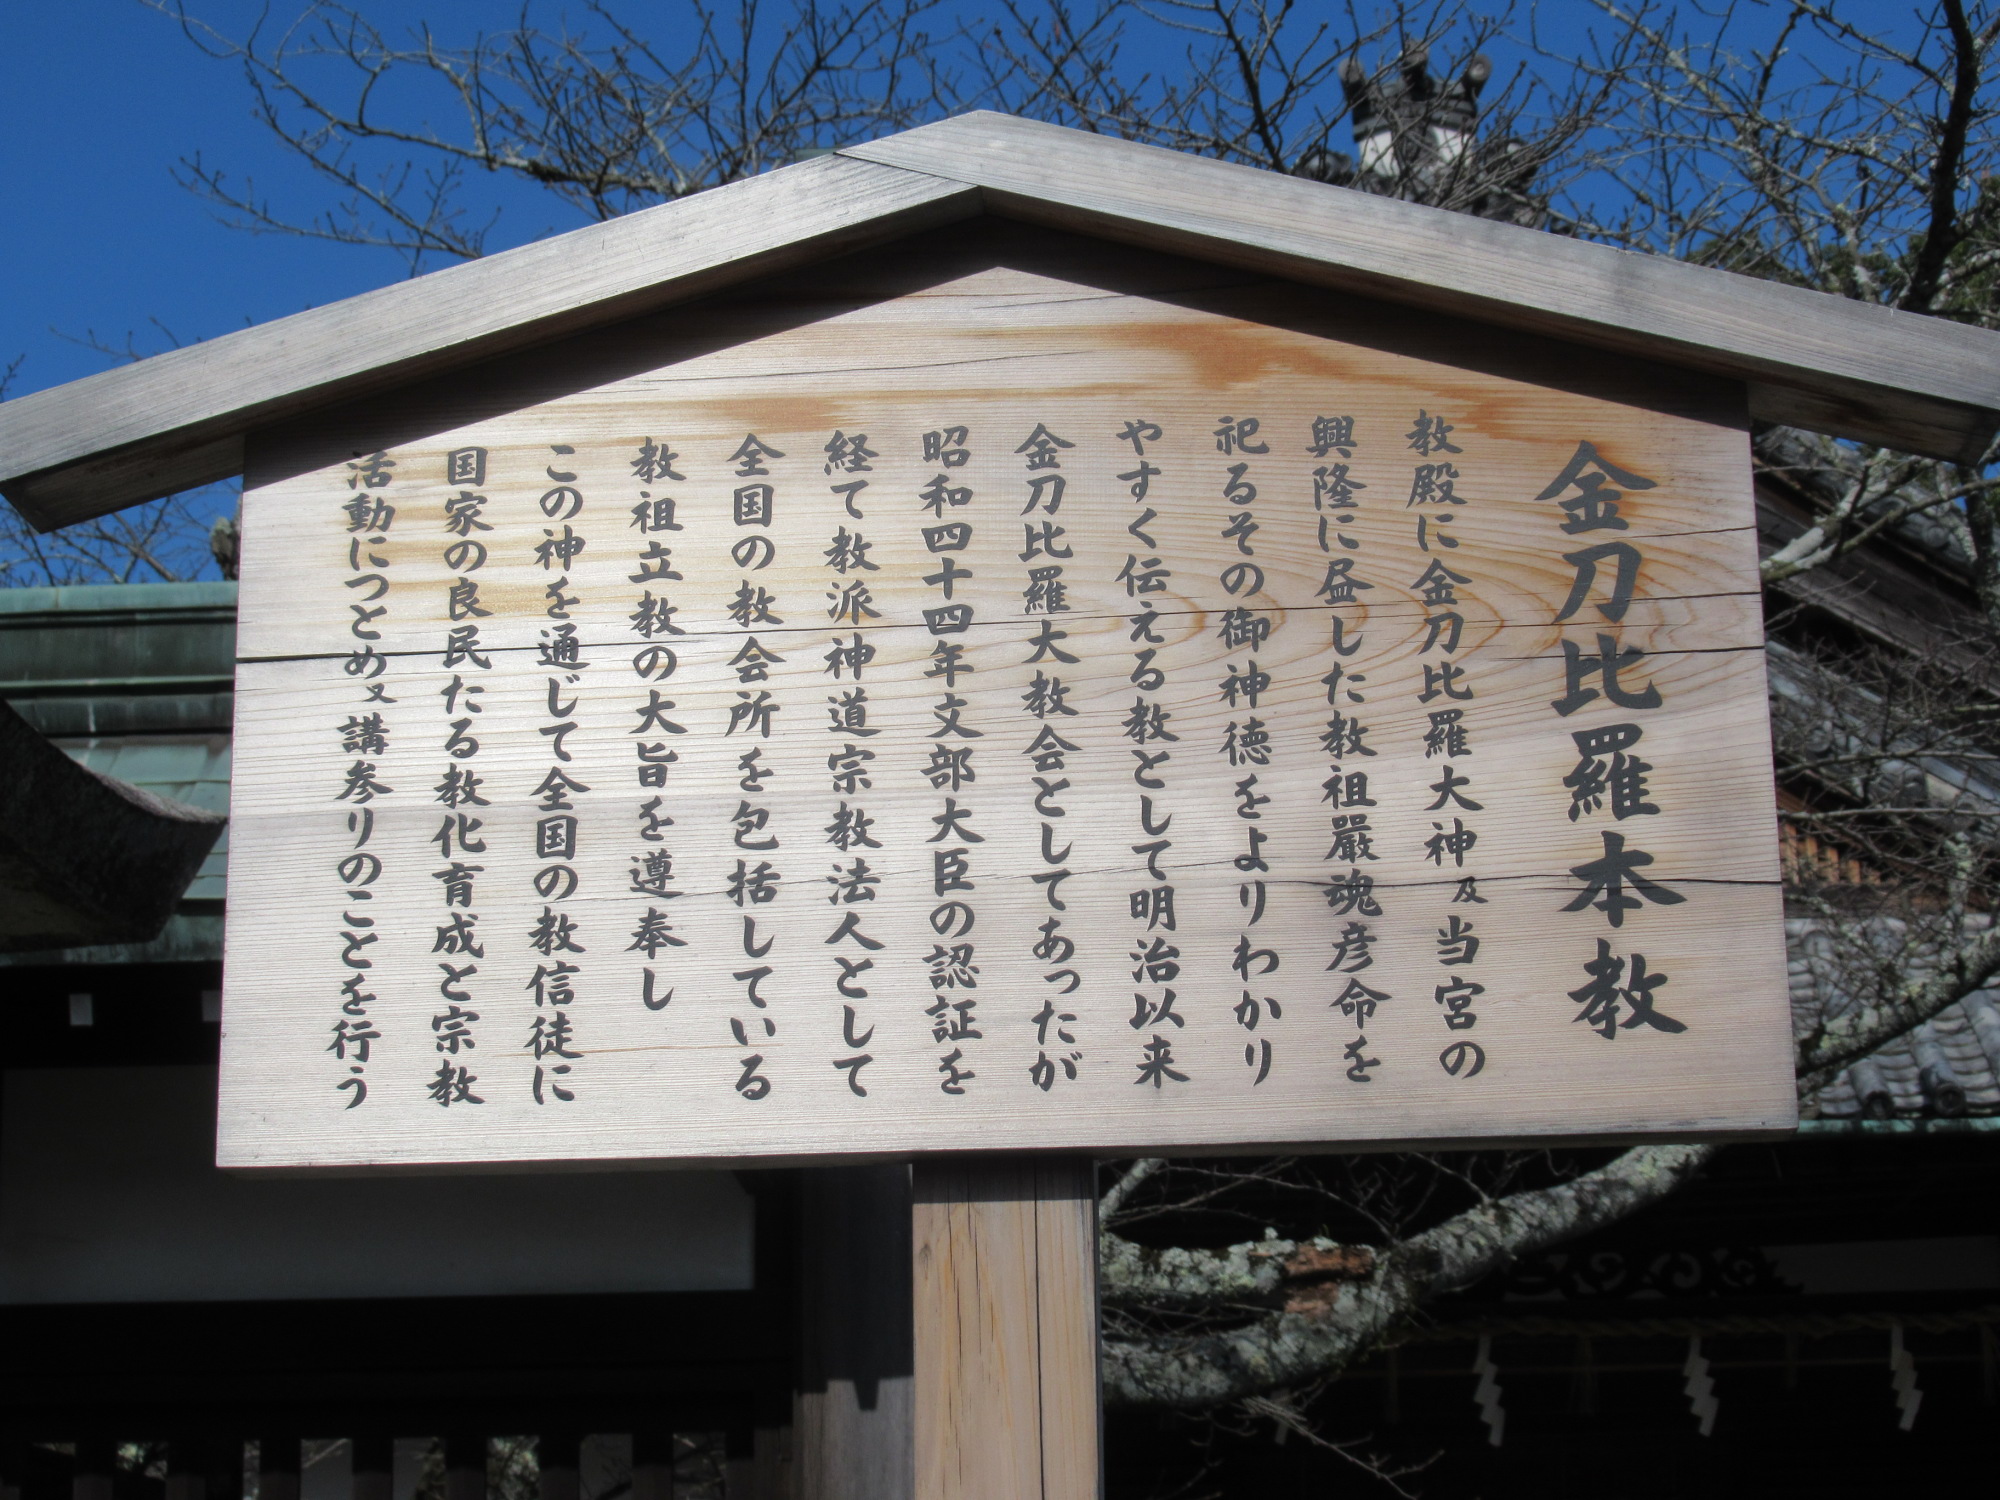 金刀比羅本教
教殿に金刀比羅大神及当宮の
興隆に尽した教祖嚴魂彦命を
祀るその御神徳をよりわかり
やすく伝える教として明治以来
金刀比羅大教会としてあったが
昭和四十四年文部大臣の認証を
経て教派神道宗教法人として
全国の教会所を包括している
教祖立教の大旨を遵奉し
この神を通じて全国の教信徒に
国家の良民たる教化育成と宗教
活動につとめ又講参りのことを行う